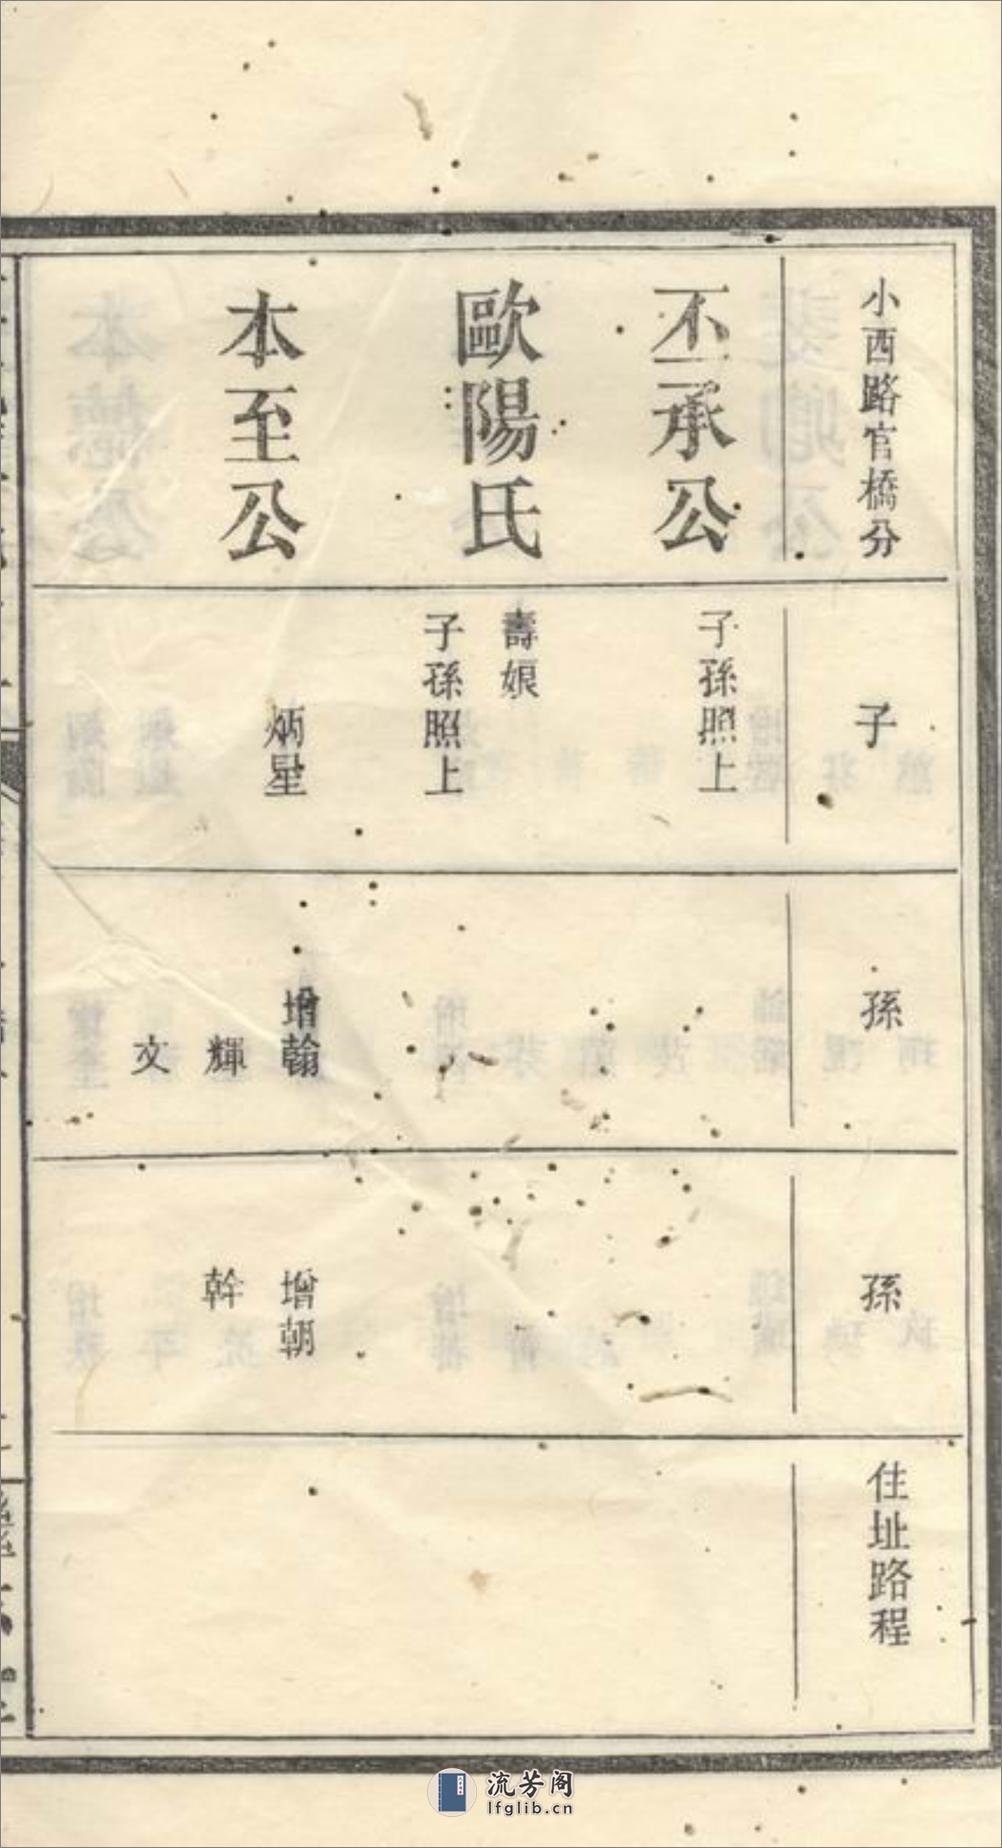 小西路官橋分
子
孫
孫
住址路程
丕承公
子孫照上
歐陽氏
壽娘
子孫照上
本至公
炳星
增翰
輝
文
增朝
幹
流芳阁
lfglib.cn